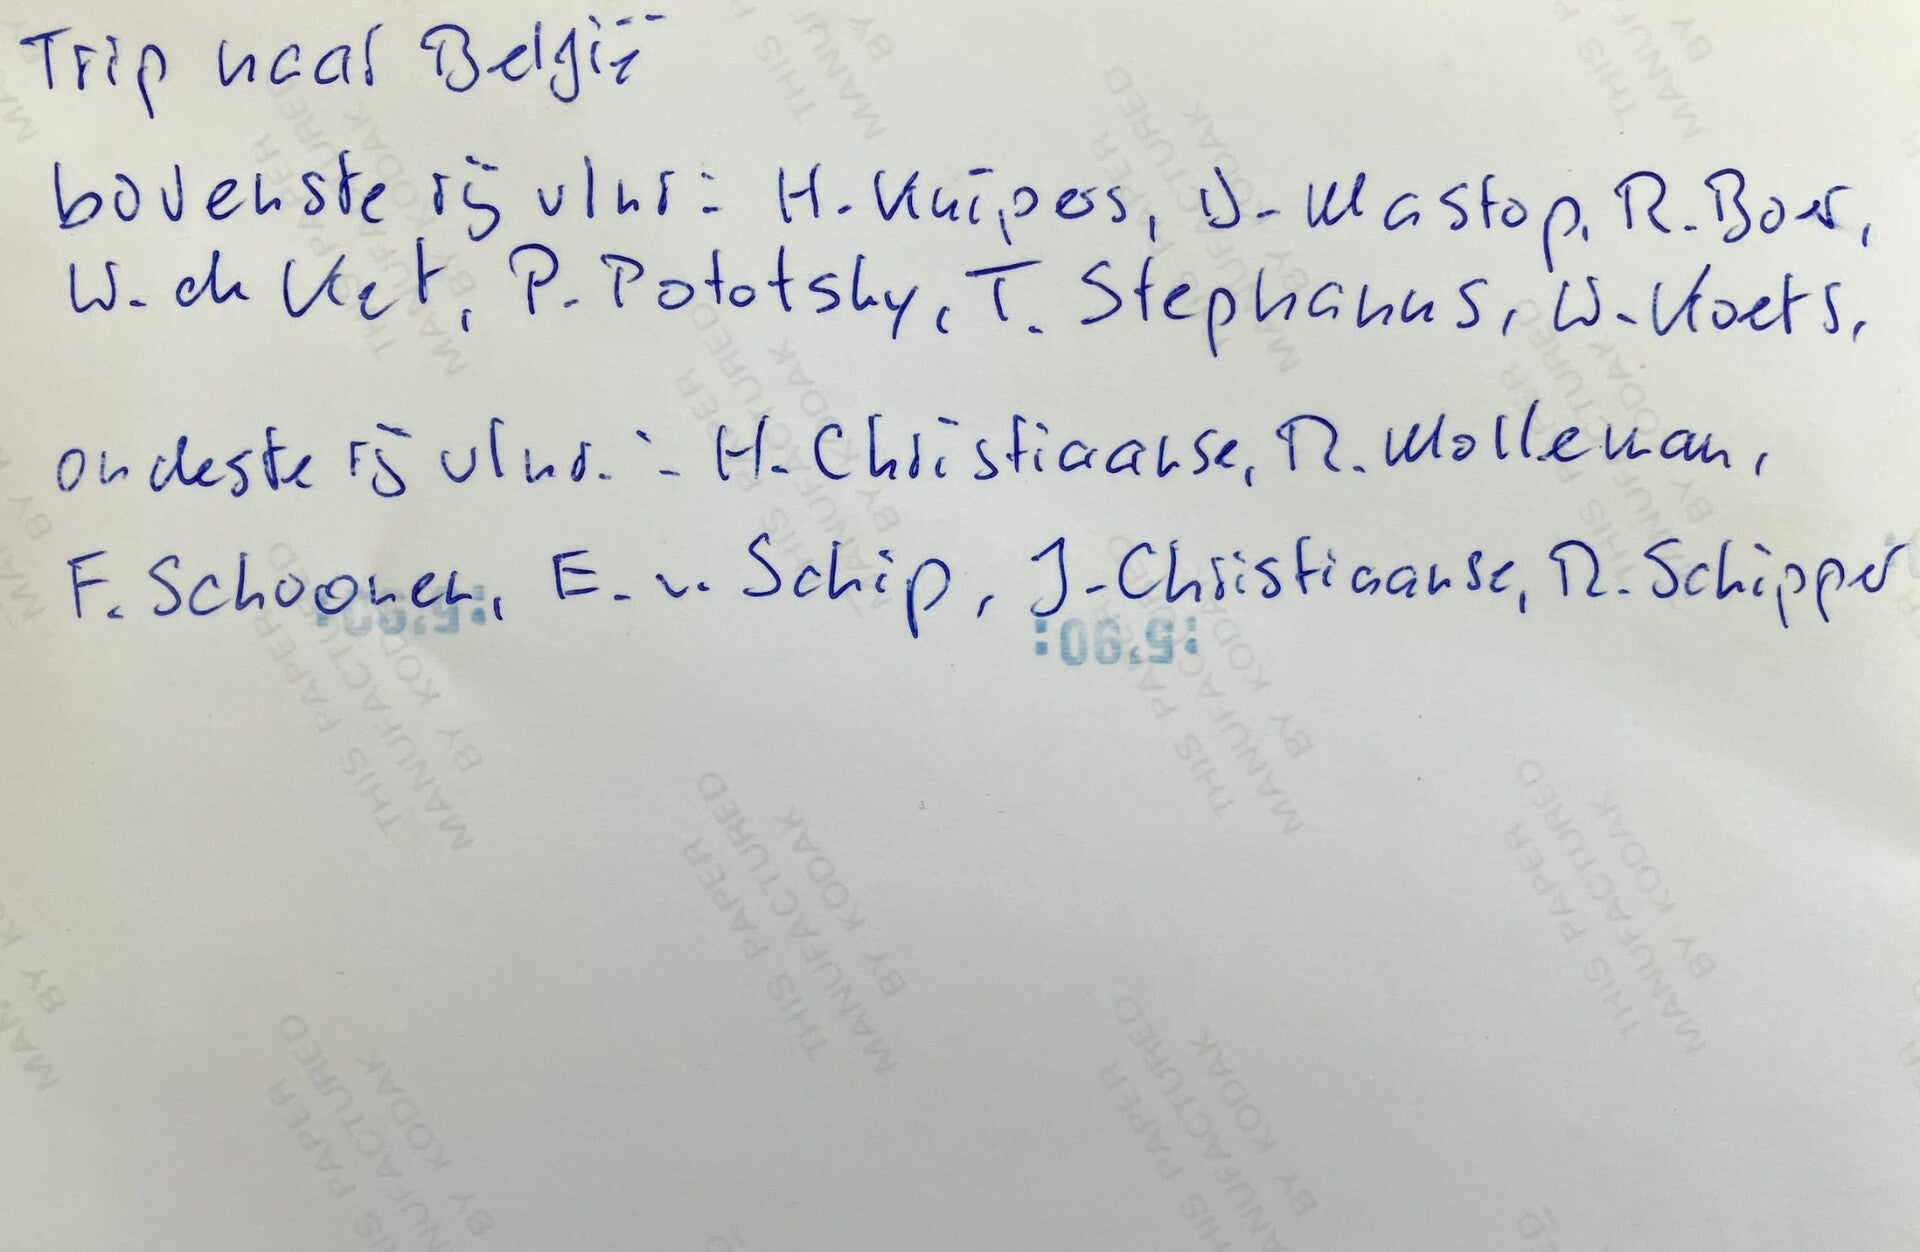 Trip naar België
bovenste rij vlnr: H. Kuipers, D. Mastop, R. Boer,
W. de Ket, P. Pototsky, T. Stephanus, W. Koets,
ondeste rij vlnr.: H. Christiaanse, R. Molleman,
F. Schoonen, E. v. Schip, J. Christiaanse, R. Schipper
THIS PAPER
MANUFACTURED
BY KODAK